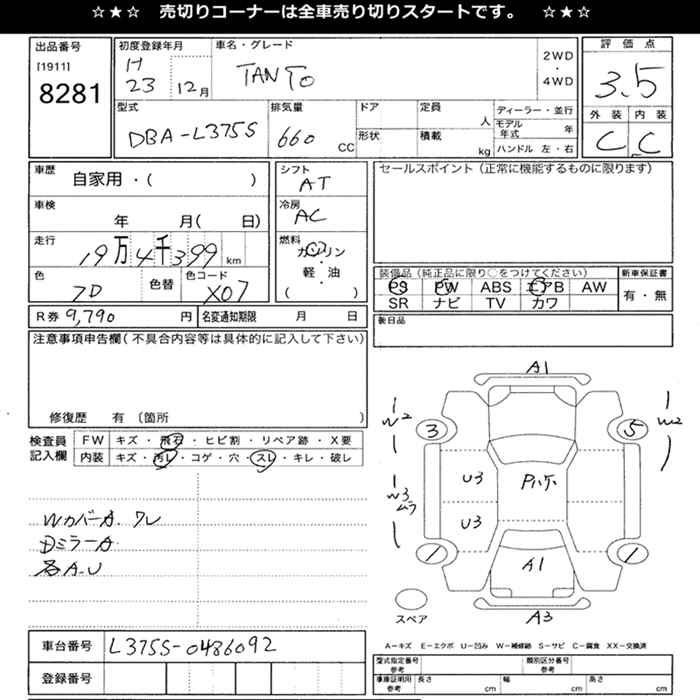 ☆★☆ 売切りコーナーは全車売り切りスタートです。 ☆★☆
出品番号
[1911]
8281
初度登録年月
H 23 12月
車名・グレード
TANTO
2WD
・
4WD
評価点
3.5
型式
DBA-L375S
排気量
660 CC
ドア
形状
定員 人
積載 kg
ディーラー・並行
モデル年式 年
ハンドル 左・右
外装 内装
C C
車歴
自家用・( )
車検
年 月( 日)
走行
19万4千399 km
色
色替
色コード
X07
シフト
AT
冷房
AC
燃料
ガソリン
・
軽・油
( )
セールスポイント(正常に機能するものに限ります)
装備品(純正品に限り○をつけてください)
PS PW ABS エアB AW
SR ナビ TV カワ
新車保証書
有・無
後日品
R券 9,790 円
名変通知期限 月 日
注意事項申告欄(不具合内容等は具体的に記入して下さい)
修復歴 有(箇所
検査員
記入欄
FW キズ・飛石・ヒビ割・リペア跡・X要
内装 キズ・汚レ・コゲ・穴・スレ・キレ・破レ
WカバーA. ワレ
DミラーA
各A.U
A1
W2
3
5
W2
U3
Pハケ
W3
ムラ
U3
1
1
A1
スペア
A3
車台番号 L375S-0486092
登録番号
A−キズ E−エクボ U−凹み W−補修跡 S−サビ C−腐食 XX−交換済
型式指定番号
参考
類別区分番号
参考
車庫証明用
参考
長さ cm
幅 cm
高さ cm